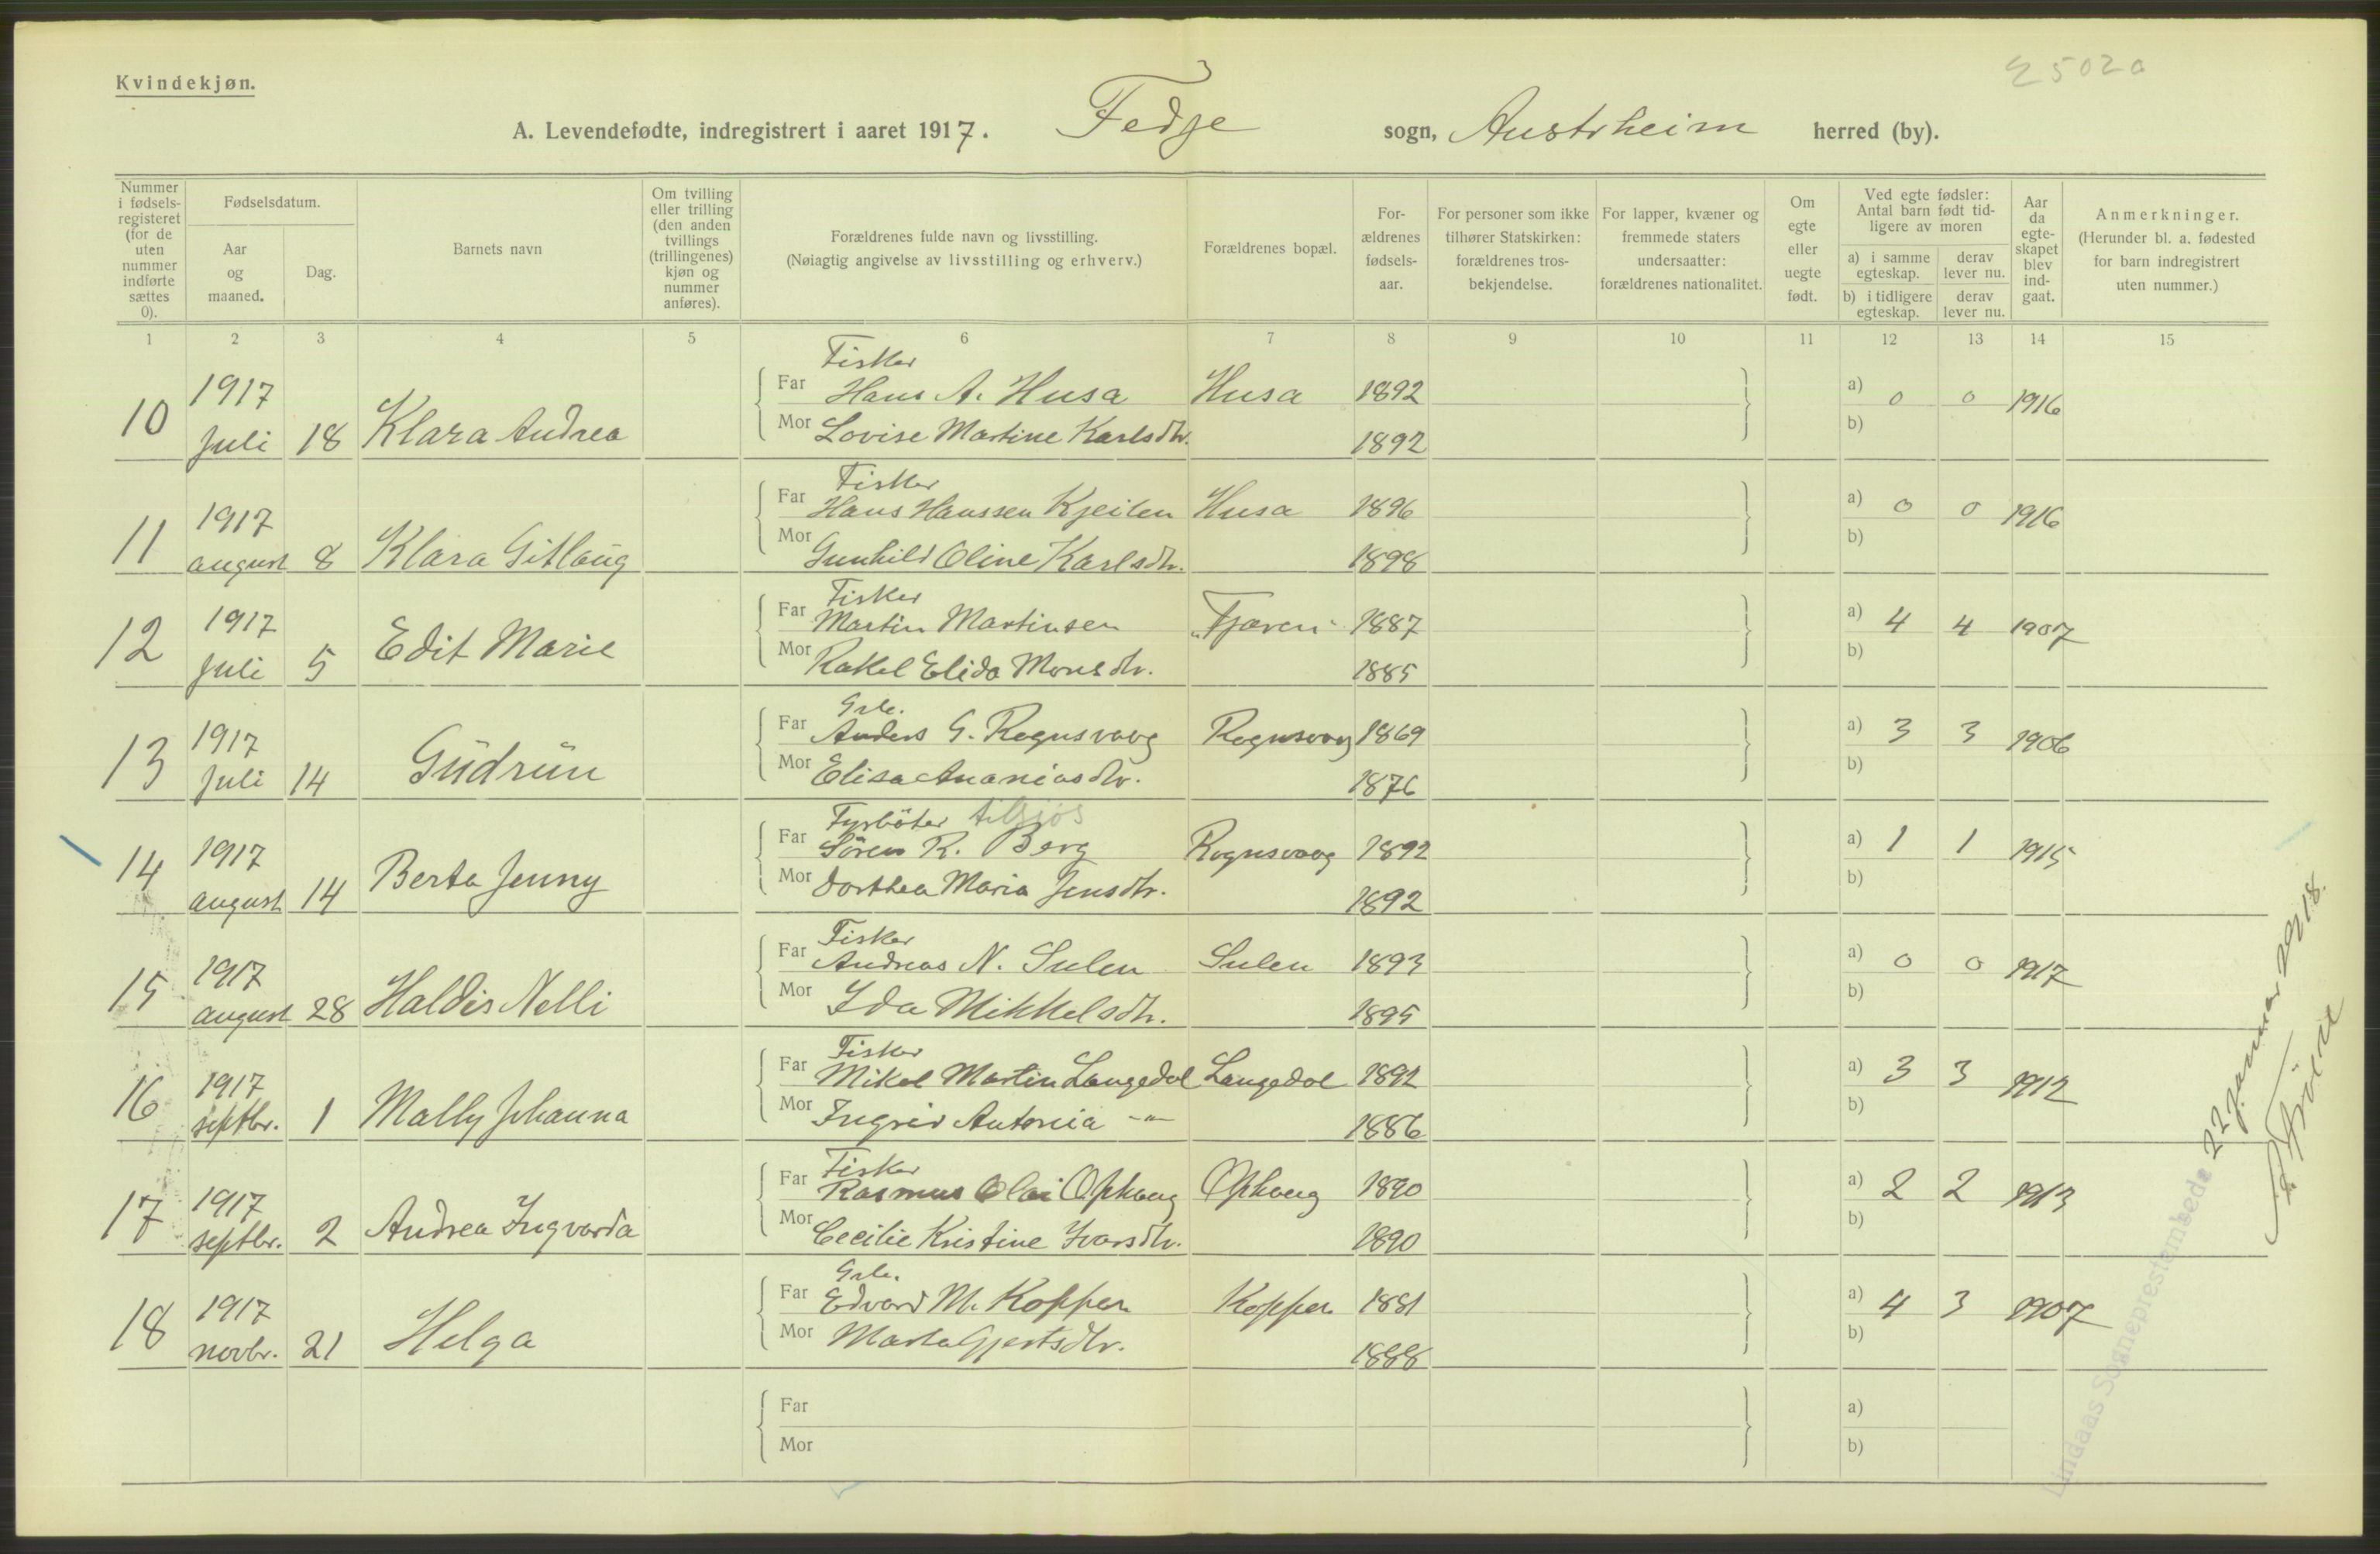 Kvindekjøn.
E 502 a
A. Levendefødte, indregistrert i aaret 1917. Fedje sogn, Austrheim herred (by).
Nummer i fødsels-registeret (for de uten nummer indførte sættes 0).
Fødselsdatum.
Aar og maaned.
Dag.
Barnets navn
Om tvilling eller trilling (den anden tvillings (trillingenes) kjøn og nummer anføres).
Forældrenes fulde navn og livsstilling.
(Nøiagtig angivelse av livsstilling og erhverv.)
Forældrenes bopæl.
For-ældrenes fødsels-aar.
For personer som ikke tilhører Statskirken: forældrenes tros-bekjendelse.
For lapper, kvæner og fremmede staters undersaatter: forældrenes nationalitet.
Om egte eller uegte født.
Ved egte fødsler: Antal barn født tid-ligere av moren
a) i samme egteskap.
derav lever nu.
b) i tidligere egteskap.
derav lever nu.
Aar da egte-skapet blev ind-gaat.
Anmerkninger.
(Herunder bl. a. fødested for barn indregistrert uten nummer.)
1 2 3 4 5 6 7 8 9 10 11 12 13 14 15
Fisker
10 1917 Juli 18 Klara Andrea Far Hans A. Husa Husa 1892 a) 0 0 1916
Mor Lovise Martine Karlsdtr. 1892 b)
Fisker
11 1917 august 8 Klara Gitlaug Far Hans Hanssen Kjeilen Husa 1896 a) 0 0 1916
Mor Gunhild Oline Karlsdtr. 1898 b)
Fisker
12 1917 Juli 5 Edit Marie Far Martin Martinsen "Tjæren" 1887 a) 4 4 1907
Mor Rakel Elida Monsdtr. 1885 b)
Grbr.
13 1917 Juli 14 Gudrun Far Anders G. Rognsvaag Rognsvaag 1869 a) 3 3 1906
Mor Elisa Ananiasdtr. 1876 b)
Fyrbøter tilsjøs
14 1917 august 14 Berta Jenny Far Sören R. Berg Rognsvaag 1892 a) 1 1 1915
Mor Dorthea Maria Jensdtr. 1892 b)
Fisker
15 1917 august 28 Haldis Nelli Far Andreas N. Sulen Sulen 1893 a) 0 0 1917
Mor Ida Mikkelsdtr. 1895 b)
Fisker
16 1917 septbr. 1 Mally Johanna Far Mikal Martin Langedal Langedal 1892 a) 3 3 1912
Mor Ingrid Antonia -"- 1886 b)
Fisker
17 1917 septbr. 2 Andrea Ingvarda Far Rasmus Olai Ophaug Ophaug 1890 a) 2 2 1913
Mor Cecilie Kristine Ivarsdtr. 1890 b)
Grbr.
18 1917 novbr. 21 Helga Far Edvard M. Kopper Kopper 1881 a) 4 3 1907
Mor Marta Gjertsdtr. 1888 b)
Far a)
Mor b)
Lindaas Sogneprestembede 22 januar 1918.